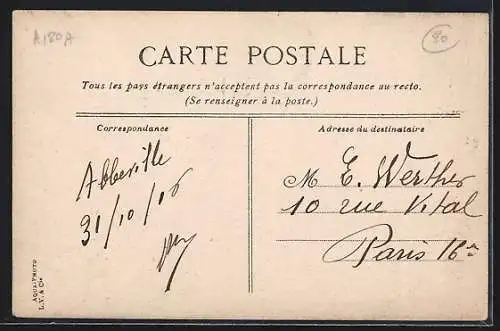 A180A
90
CARTE POSTALE
Tous les pays étrangers n'acceptent pas la correspondance au recto.
(Se renseigner à la poste.)
Correspondance
Abbeville
31/10/06
Adresse du destinataire
M E. Werther
10 rue Vital
Paris 16e
AQUA-PHOTO
L.V. & Cie